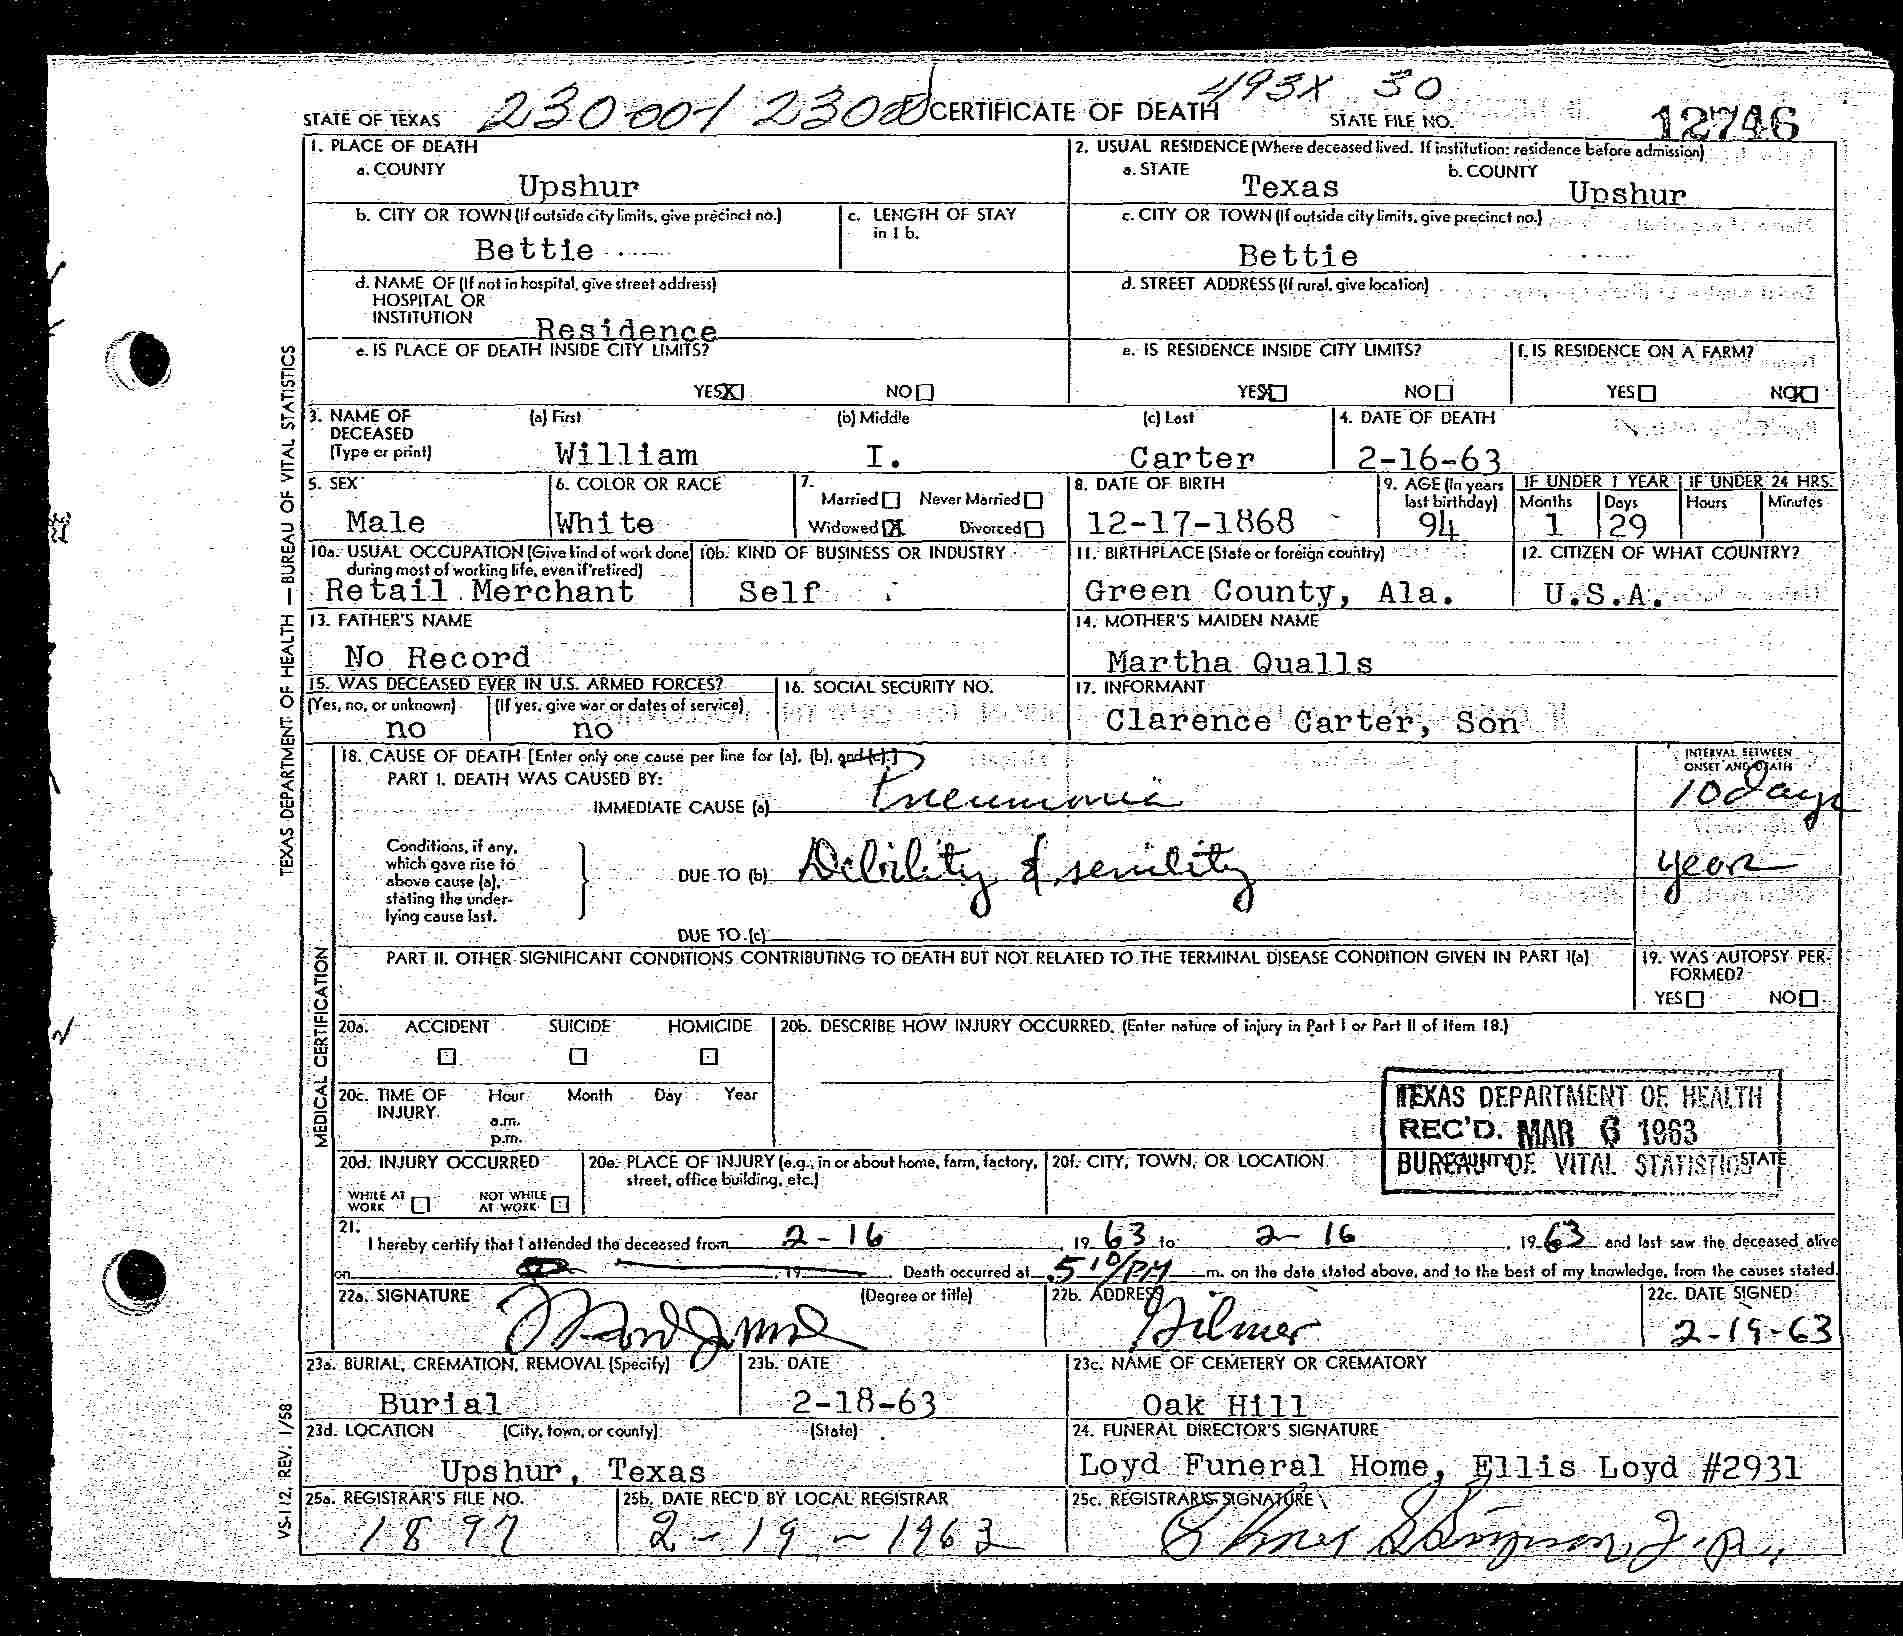 230 001 2300 493X 30
STATE OF TEXAS CERTIFICATE OF DEATH STATE FILE NO. 12746
1. PLACE OF DEATH
a. COUNTY
Upshur
b. CITY OR TOWN (If outside city limits, give precinct no.)
Bettie
c. LENGTH OF STAY
in 1 b.
d. NAME OF (If not in hospital, give street address)
HOSPITAL OR
INSTITUTION
Residence
e. IS PLACE OF DEATH INSIDE CITY LIMITS?
YES X NO
2. USUAL RESIDENCE (Where deceased lived. If institution: residence before admission)
a. STATE
Texas
b. COUNTY
Upshur
c. CITY OR TOWN (If outside city limits, give precinct no.)
Bettie
d. STREET ADDRESS (If rural, give location)
e. IS RESIDENCE INSIDE CITY LIMITS?
YES X NO
f. IS RESIDENCE ON A FARM?
YES NO X
3. NAME OF
DECEASED
(Type or print)
(a) First (b) Middle (c) Last
William I. Carter
4. DATE OF DEATH
2-16-63
5. SEX
Male
6. COLOR OR RACE
White
7.
Married Never Married
Widowed X Divorced
8. DATE OF BIRTH
12-17-1868
9. AGE (In years
last birthday)
94
IF UNDER 1 YEAR
Months Days
1 29
IF UNDER 24 HRS.
Hours Minutes
10a. USUAL OCCUPATION (Give kind of work done
during most of working life, even if retired)
Retail Merchant
10b. KIND OF BUSINESS OR INDUSTRY
Self
11. BIRTHPLACE (State or foreign country)
Green County, Ala.
12. CITIZEN OF WHAT COUNTRY?
U.S.A.
13. FATHER'S NAME
No Record
14. MOTHER'S MAIDEN NAME
Martha Qualls
15. WAS DECEASED EVER IN U.S. ARMED FORCES?
(Yes, no, or unknown) (If yes, give war or dates of service)
no no
16. SOCIAL SECURITY NO.
17. INFORMANT
Clarence Carter, Son
18. CAUSE OF DEATH [Enter only one cause per line for (a), (b), and (c).]
PART I. DEATH WAS CAUSED BY:
IMMEDIATE CAUSE (a) Pneumonia
INTERVAL BETWEEN
ONSET AND DEATH
10 days
Conditions, if any,
which gave rise to
above cause (a),
stating the under-
lying cause last.
DUE TO (b) Debility & senility
year
DUE TO (c)
PART II. OTHER SIGNIFICANT CONDITIONS CONTRIBUTING TO DEATH BUT NOT RELATED TO THE TERMINAL DISEASE CONDITION GIVEN IN PART I(a)
19. WAS AUTOPSY PER-
FORMED?
YES NO
20a. ACCIDENT SUICIDE HOMICIDE
20b. DESCRIBE HOW INJURY OCCURRED. (Enter nature of injury in Part I or Part II of item 18.)
20c. TIME OF
INJURY
Hour Month Day Year
a.m.
p.m.
TEXAS DEPARTMENT OF HEALTH
REC'D. MAR 6 1963
BUREAU OF VITAL STATISTICS
20d. INJURY OCCURRED
WHILE AT
WORK
NOT WHILE
AT WORK
20e. PLACE OF INJURY (e.g., in or about home, farm, factory,
street, office building, etc.)
20f. CITY, TOWN, OR LOCATION COUNTY STATE
21.
I hereby certify that I attended the deceased from 2-16, 1963 to 2-16, 1963 and last saw the deceased alive
on , 19 . Death occurred at 5 10/PM m. on the date stated above, and to the best of my knowledge, from the causes stated.
22a. SIGNATURE (Degree or title)
22b. ADDRESS
Gilmer
22c. DATE SIGNED
2-19-63
23a. BURIAL, CREMATION, REMOVAL (Specify)
Burial
23b. DATE
2-18-63
23c. NAME OF CEMETERY OR CREMATORY
Oak Hill
23d. LOCATION (City, town, or county) (State)
Upshur, Texas
24. FUNERAL DIRECTOR'S SIGNATURE
Loyd Funeral Home, Ellis Loyd #2931
25a. REGISTRAR'S FILE NO.
1897
25b. DATE REC'D BY LOCAL REGISTRAR
2-19-1963
25c. REGISTRAR'S SIGNATURE
TEXAS DEPARTMENT OF HEALTH — BUREAU OF VITAL STATISTICS
MEDICAL CERTIFICATION
VS-112, REV. 1/58